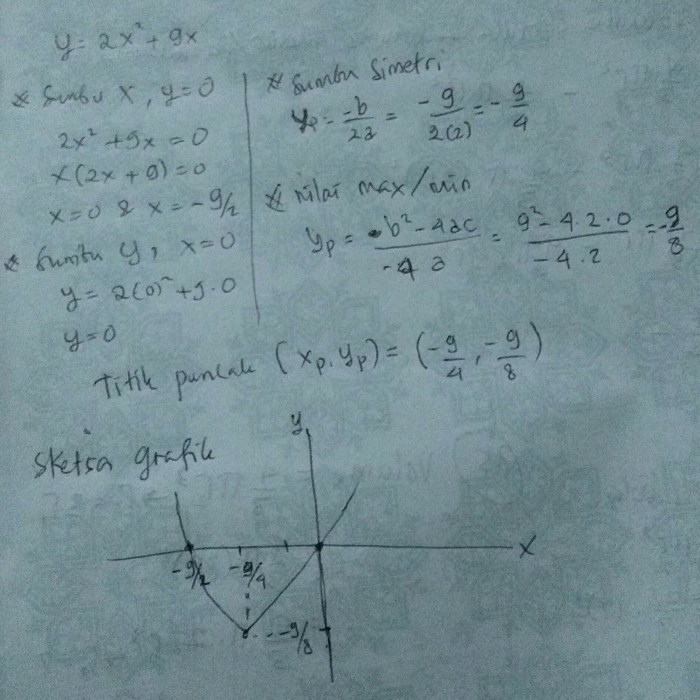 y = 2x² + 9x
* Sumbu x, y=0
2x² + 9x = 0
x(2x + 9) = 0
x=0 & x = -9/2
* Sumbu y, x=0
y = 2(0)² + 9·0
y=0
* Sumbu Simetri
yp = -b/2a = -9/2(2) = -9/4
* nilai max/min
yp = b²-4ac/-4a = 9²-4·2·0/-4·2 = -9/8
Titik puncak (xp, yp) = (-9/4, -9/8)
Sketsa grafik
y
x
-9/2
-9/4
-9/8